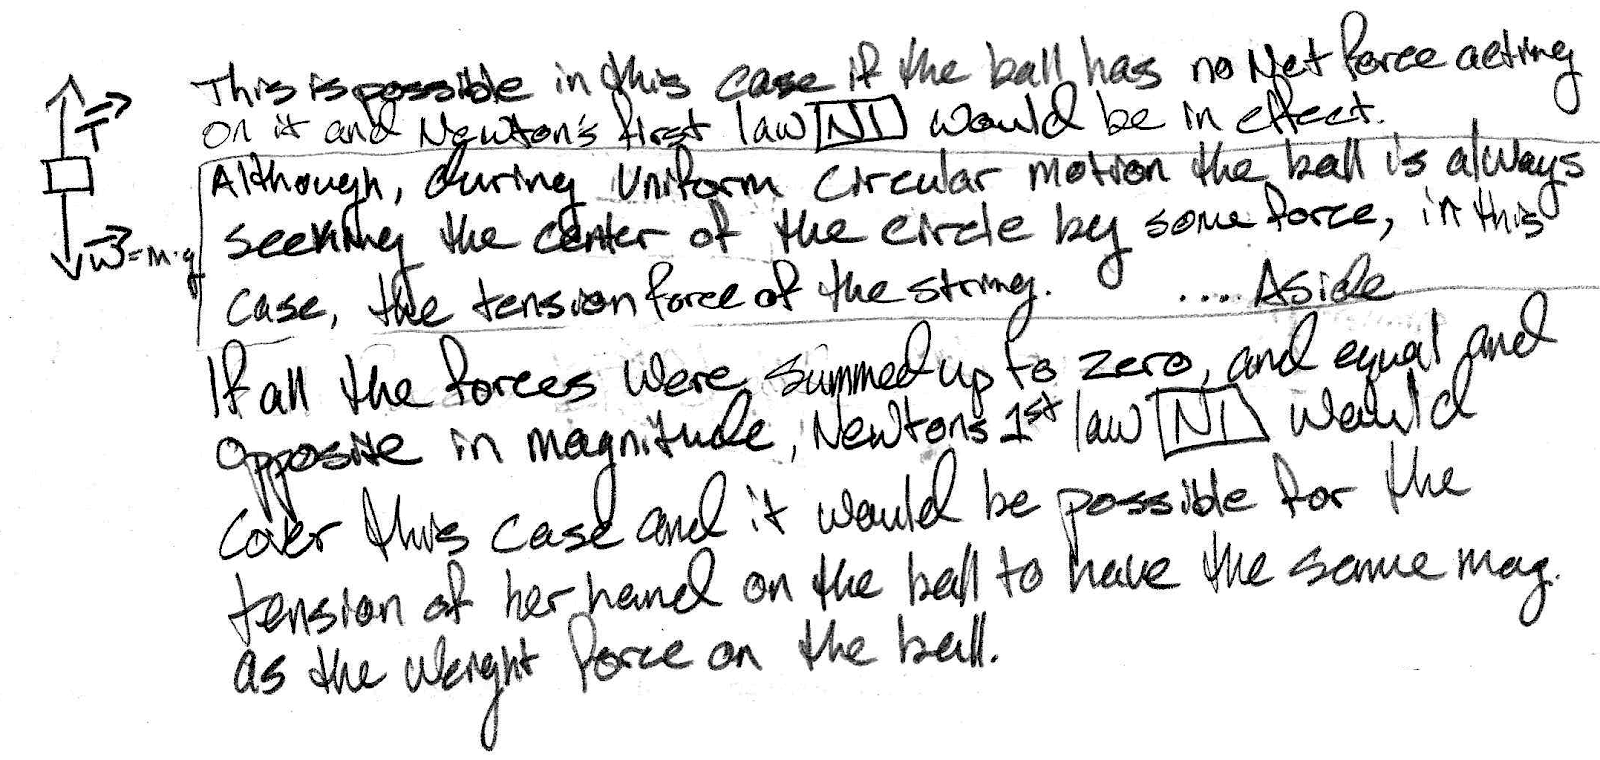 This is possible in this case if the ball has no Net force acting
on it and Newton's first law NI would be in effect.
Although, during Uniform Circular motion the ball is always
seeking the center of the circle by some force, in this
case, the tension force of the string. .... Aside
If all the forces were summed up to zero, and equal and
opposite in magnitude, Newtons 1st law NI would
cover this case and it would be possible for the
tension of her hand on the ball to have the same mag.
as the weight force on the ball.
T
w = m·g